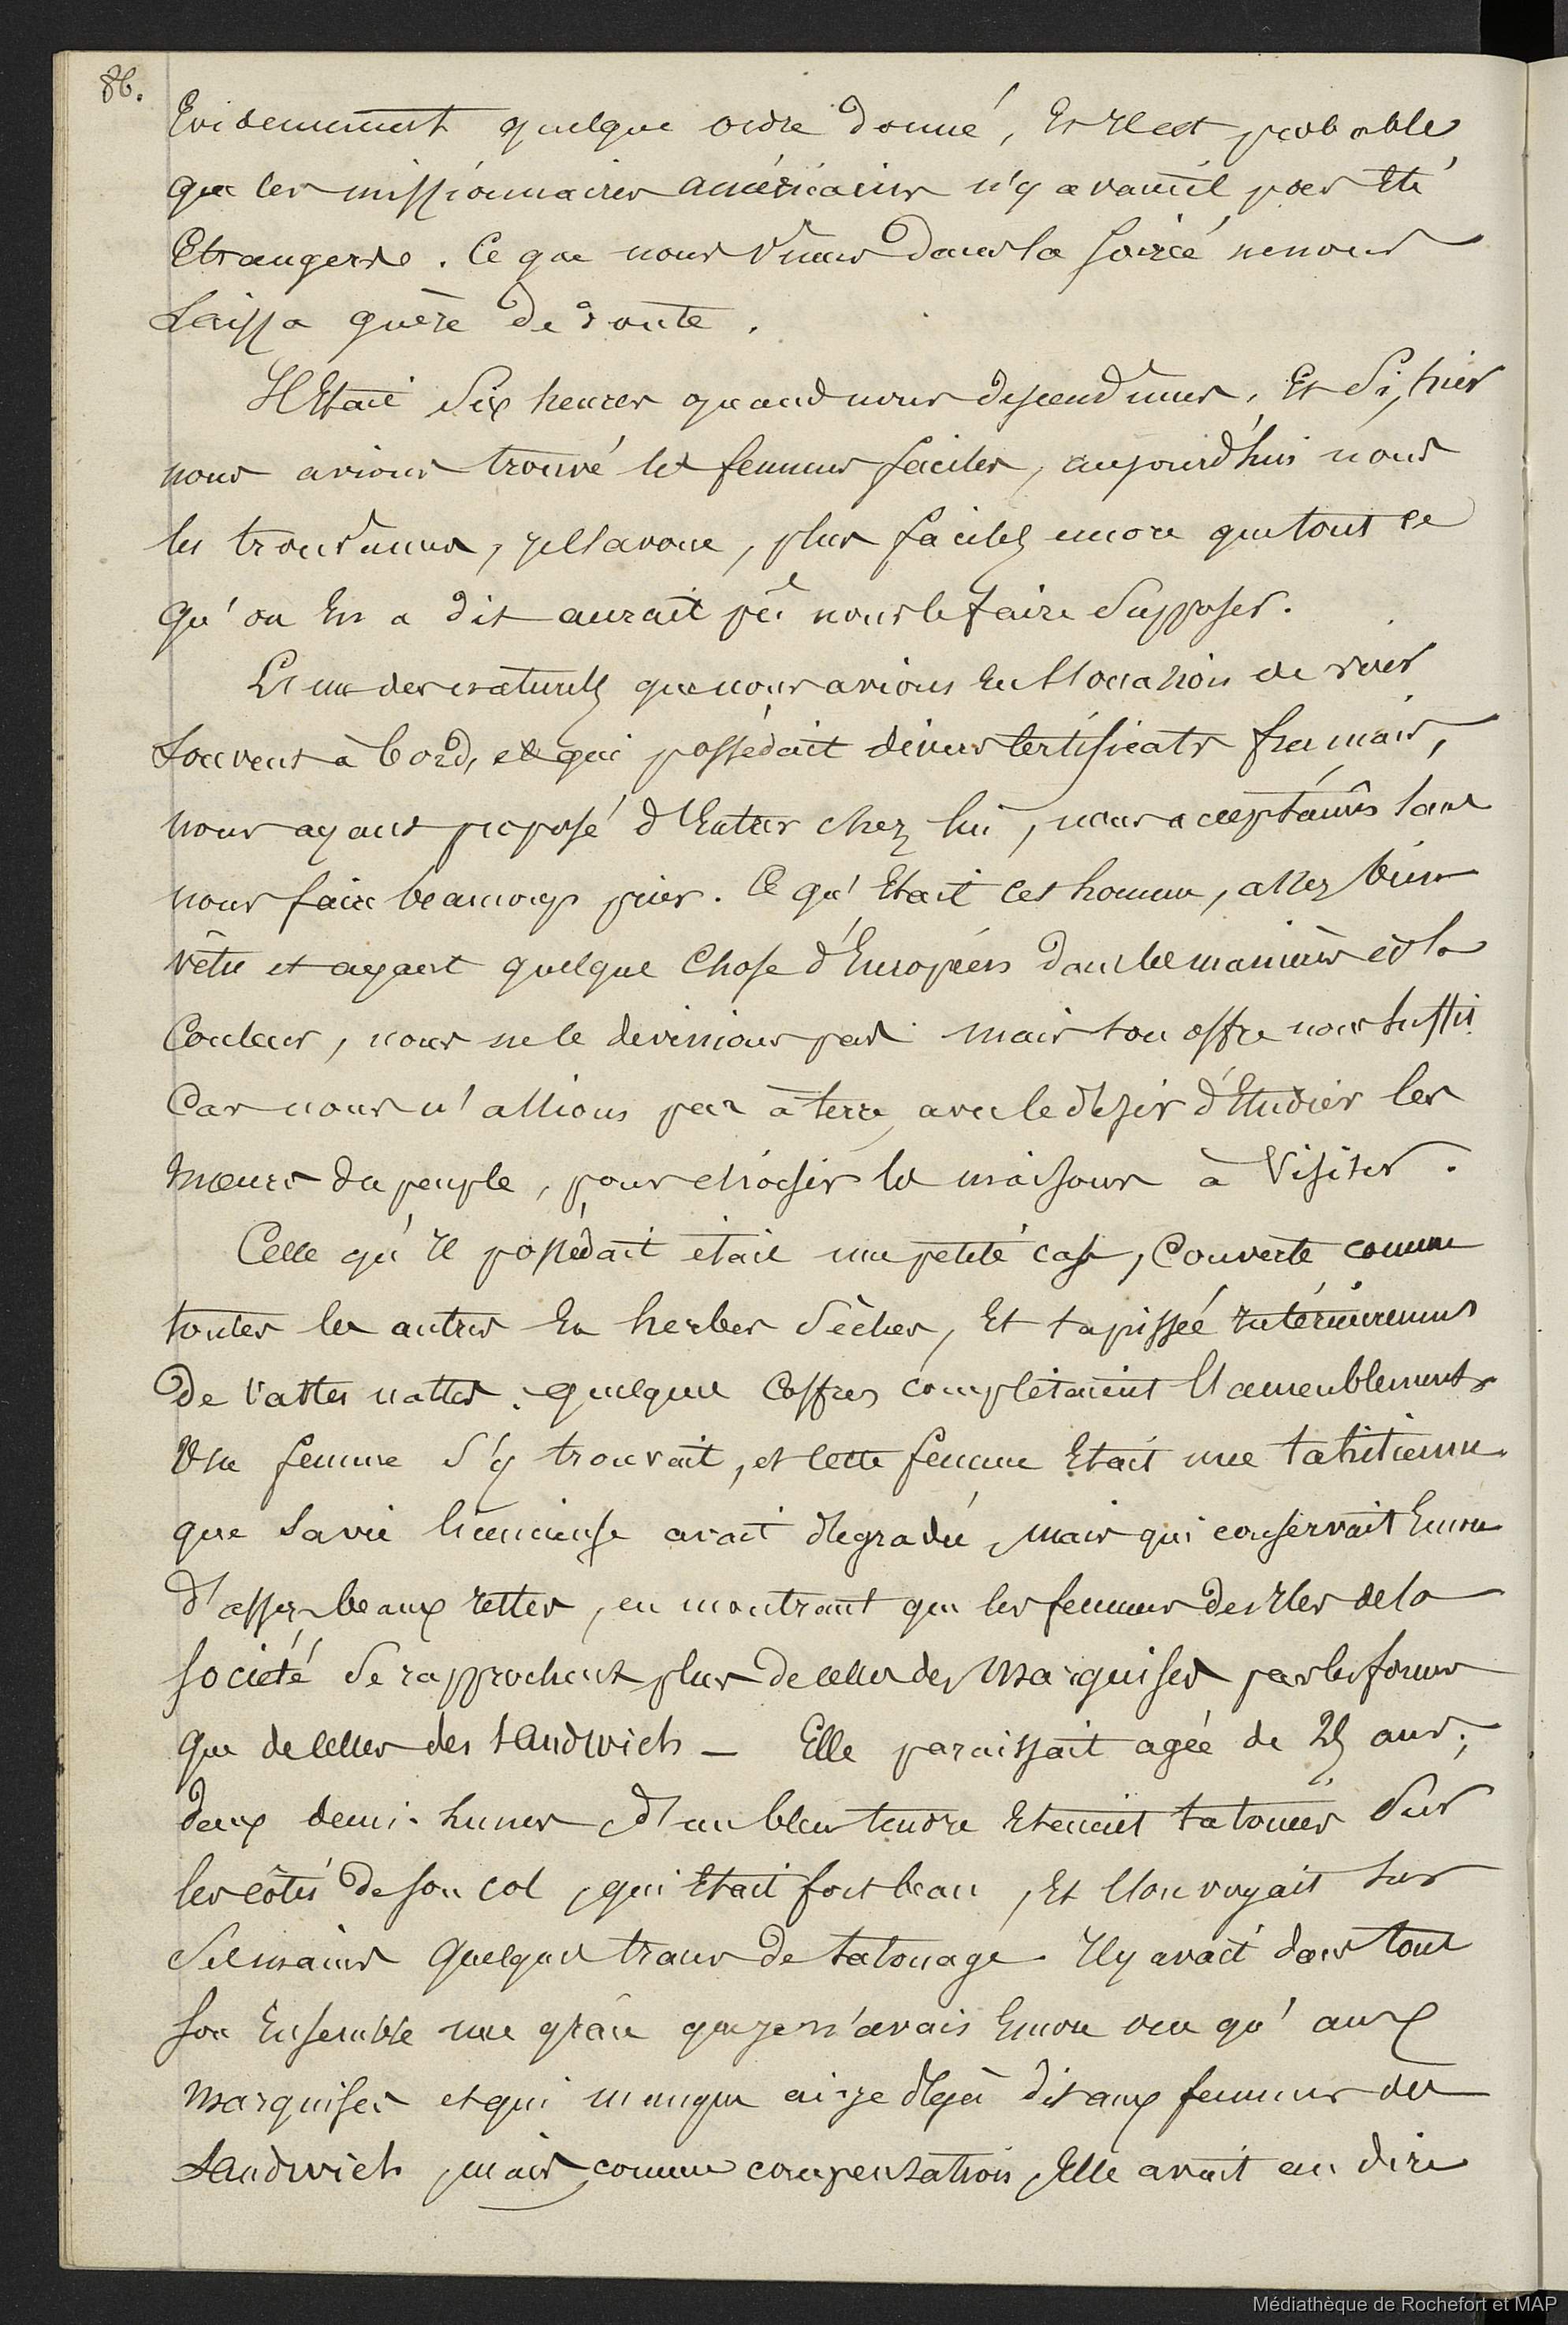 86.
Evidemment quelque ordre donné, Et Il est probable
que les missionnaires américains n'y avaient pas été
Etrangers. Ce que nous vimes dans la soirée ne nous
Laissa guère de doute.
Il Etait Six heures quand nous descendimes, Et Si, hier
nous avions trouvé les femmes faciles, aujourd'hui nous
les trouvames, je l'avoue, plus faciles encore que tout ce
qu'on En a dit aurait pû nous le faire Supposer.
L'un des naturels que nous avions eu l'occasion de voir
Souvent à bord, et qui possédait divers certificats français,
nous ayant proposé d'Entrer chez lui, nous acceptâmes sans
nous faire beaucoup prier. Ce qu'Etait cet homme, assez bien
vêtu et ayant quelque Chose d'Européen dans les manières et la
Couleur, nous ne le devinions pas mais son offre nous suffit
Car nous n'allions pas à terre, avec le désir d'Etudier les
Mœurs du peuple, pour choisir les maisons à Visiter.
Celle qu'Il possédait était une petite case, Couverte comme
toutes les autres En herbes Sèches, Et tapissée Intérieurement
De vastes nattes. quelques Coffres complétaient l'ameublement.
Une femme S'y trouvait, et cette femme Etait une tahitienne
que sa vie licencieuse avait dégradée, mais qui conservait Encore
d'assez beaux restes, en montrant que les femmes des Iles de la
Société Se rapprochent plus de celles des Marquises par les formes
que de celles des Sandwich — Elle paraissait agée de 25 ans;
deux demi-lunes d'un bleu tendre Etaient tatouées Sur
les côtés de son col, qui Etait fort beau, Et l'on voyait sur
Ses mains quelques traces de tatouage. Il y avait dans tout
son Ensemble une grâce que je n'avais Encore vue qu'aux
Marquises et qui manque ai-je déjà dit aux femmes des
Sandwich, mais, comme compensation, Elle avait au dire
Médiathèque de Rochefort et MAP